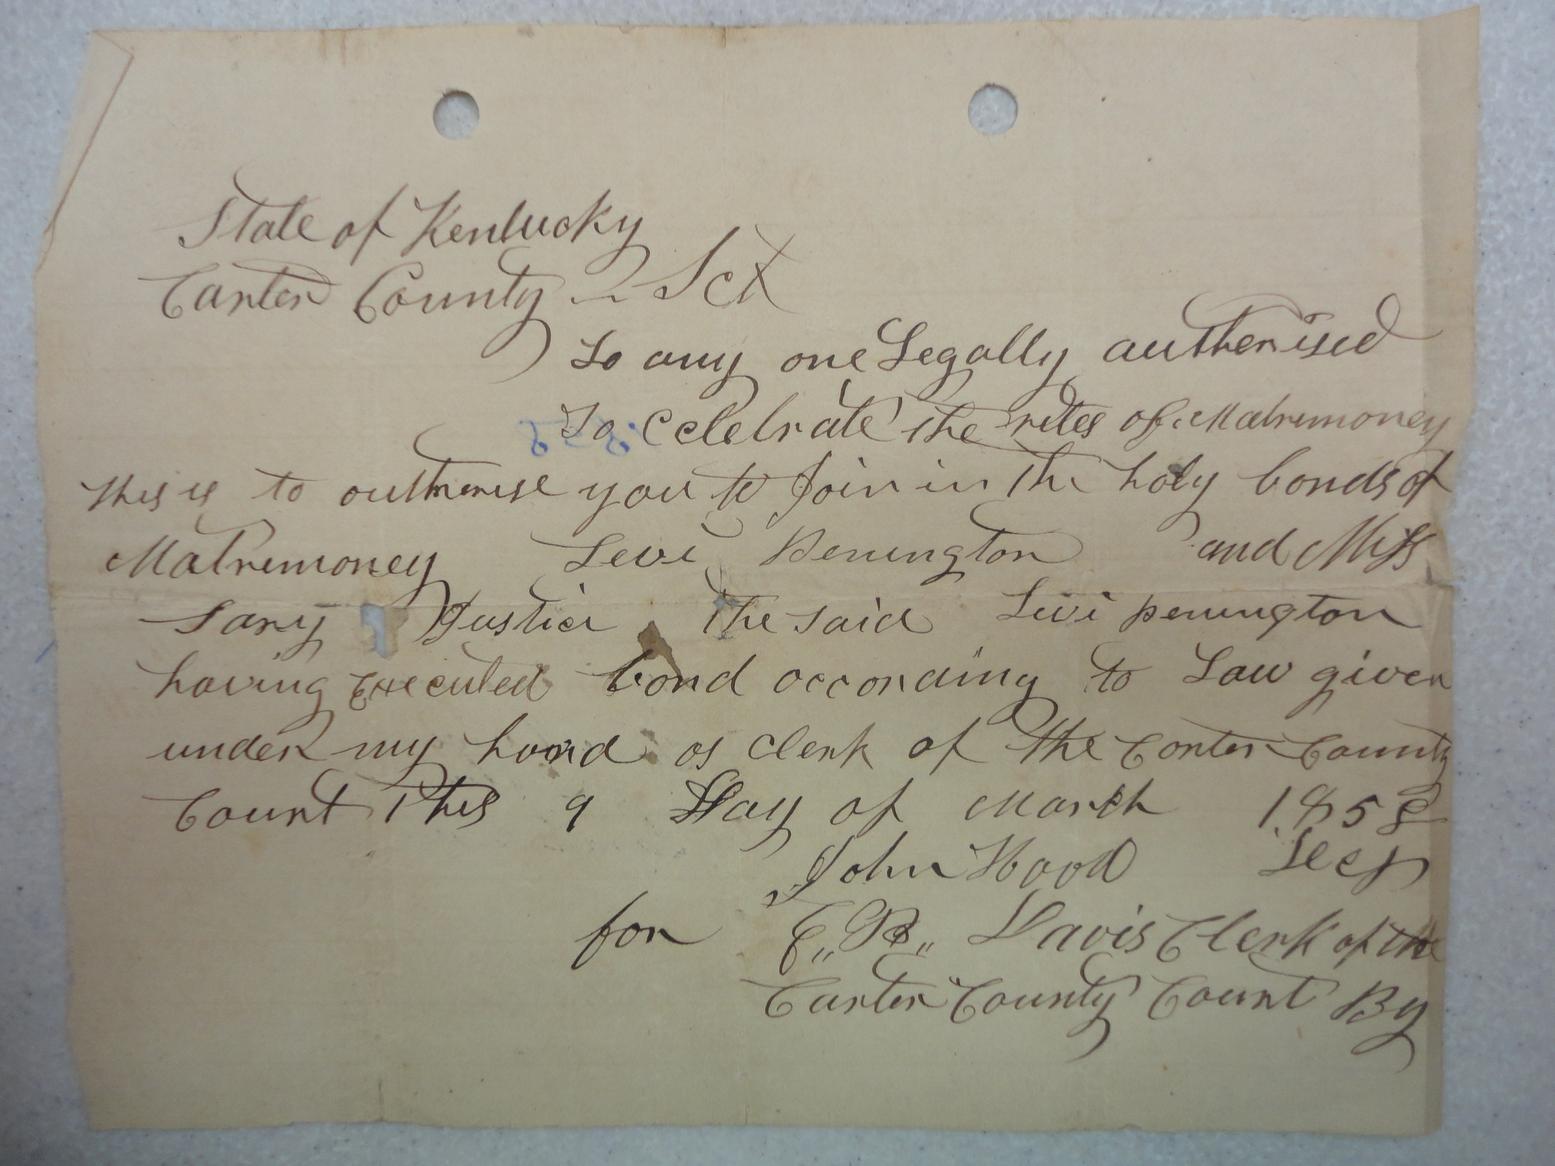 State of Kentucky
Carter County Sct
To any one Legally autherised
To Celebrate the rites of Matrimoney
this is to autherise you to Join in the holy bonds of
Matrimoney Levi Penington and Miss
Sary Justice the said Levi penington
having Executed bond according to Law given
under my hand as clerk of the Carter County
Court this 9 Day of March 1858
John Hood
for E,, B,, Davis Clerk of the
Carter County Court By